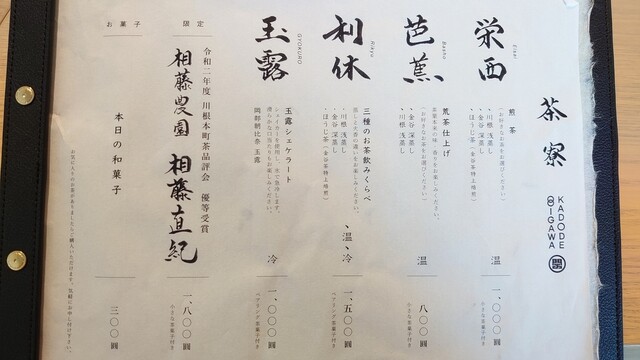 茶寮
KADODE
OOIGAWA
Eisai
栄西
煎茶
(お好きなお茶をお選びください)
・川根 浅蒸し
・金谷 深蒸し
・ほうじ茶
温
一、〇〇〇圓
小さな茶菓子付き
Basho
芭蕉
荒茶仕上げ
(お好きなお茶をお選びください)
・金谷 深蒸し
・川根 浅蒸し
温
八〇〇圓
小さな茶菓子付き
Rikyu
利休
三種のお茶飲みくらべ
・川根 浅蒸し
・金谷 深蒸し
・ほうじ茶
、温、冷
一、五〇〇圓
ペアリング茶菓子付き
GYOKURO
玉露
玉露シェケラート
岡部朝比奈 玉露
冷
一、〇〇〇圓
ペアリング茶菓子付き
限定
令和二年度 川根本町茶品評会 優等受賞
相藤農園 相藤直紀
一、八〇〇圓
小さな茶菓子付き
お菓子
本日の和菓子
三〇〇圓
お気に入りのお茶がありましたらご購入いただけます。気軽にお申し付け下さい。